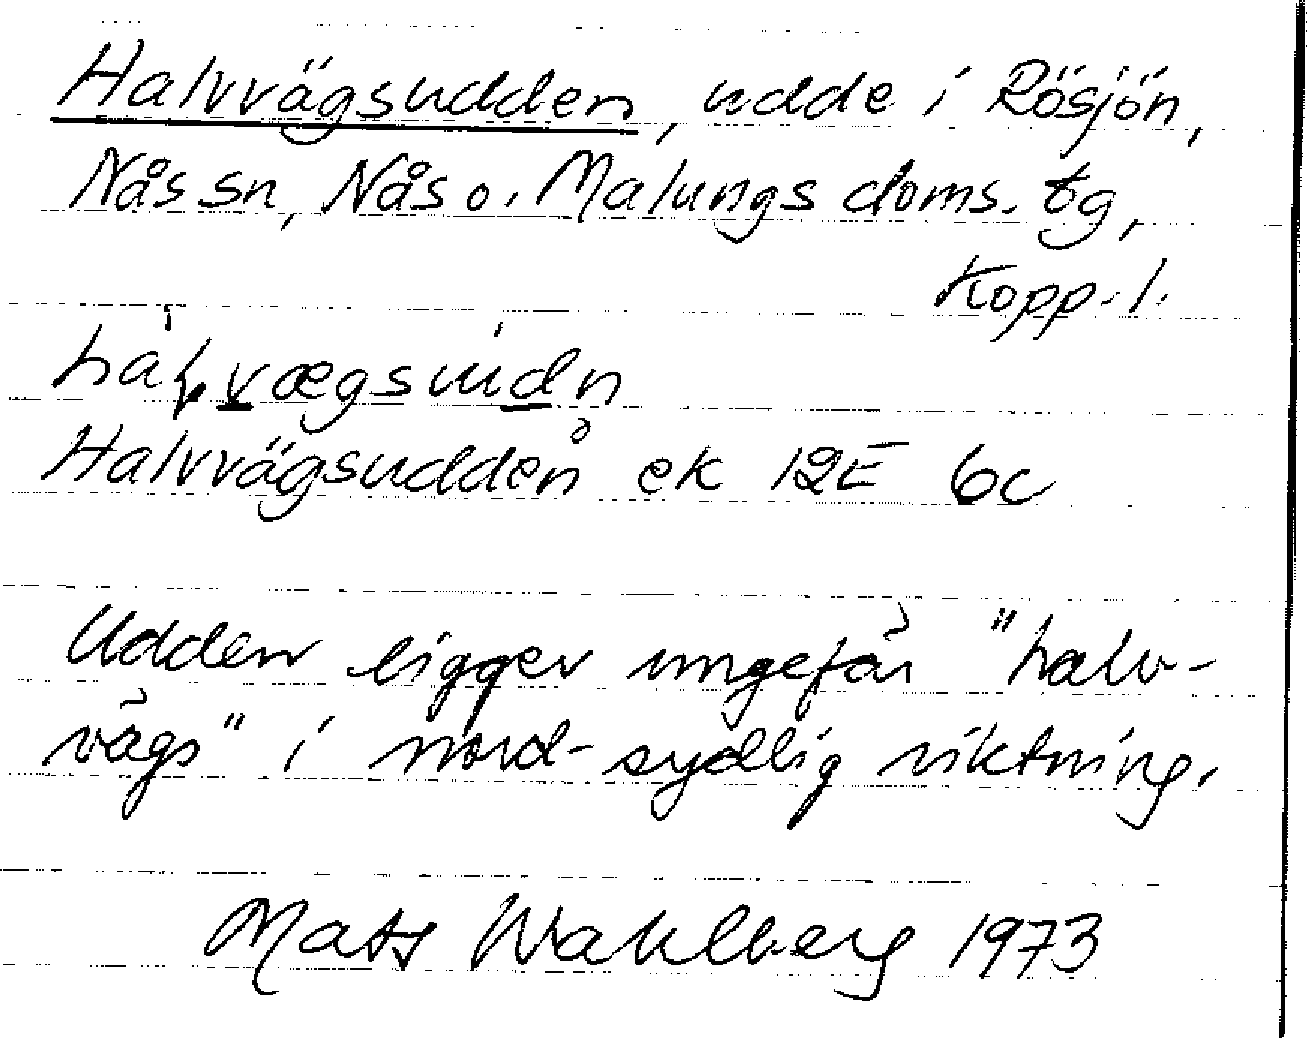 Halvvägsudden, udde i Rösjön,
Nås sn, Nås o. Malungs doms. tg,
Kopp. l.
Halvvägsudden ek 12E 6c
Udden ligger ungefär "halv-
vägs" i nord-sydlig riktning.
Mats Wahlberg 1973